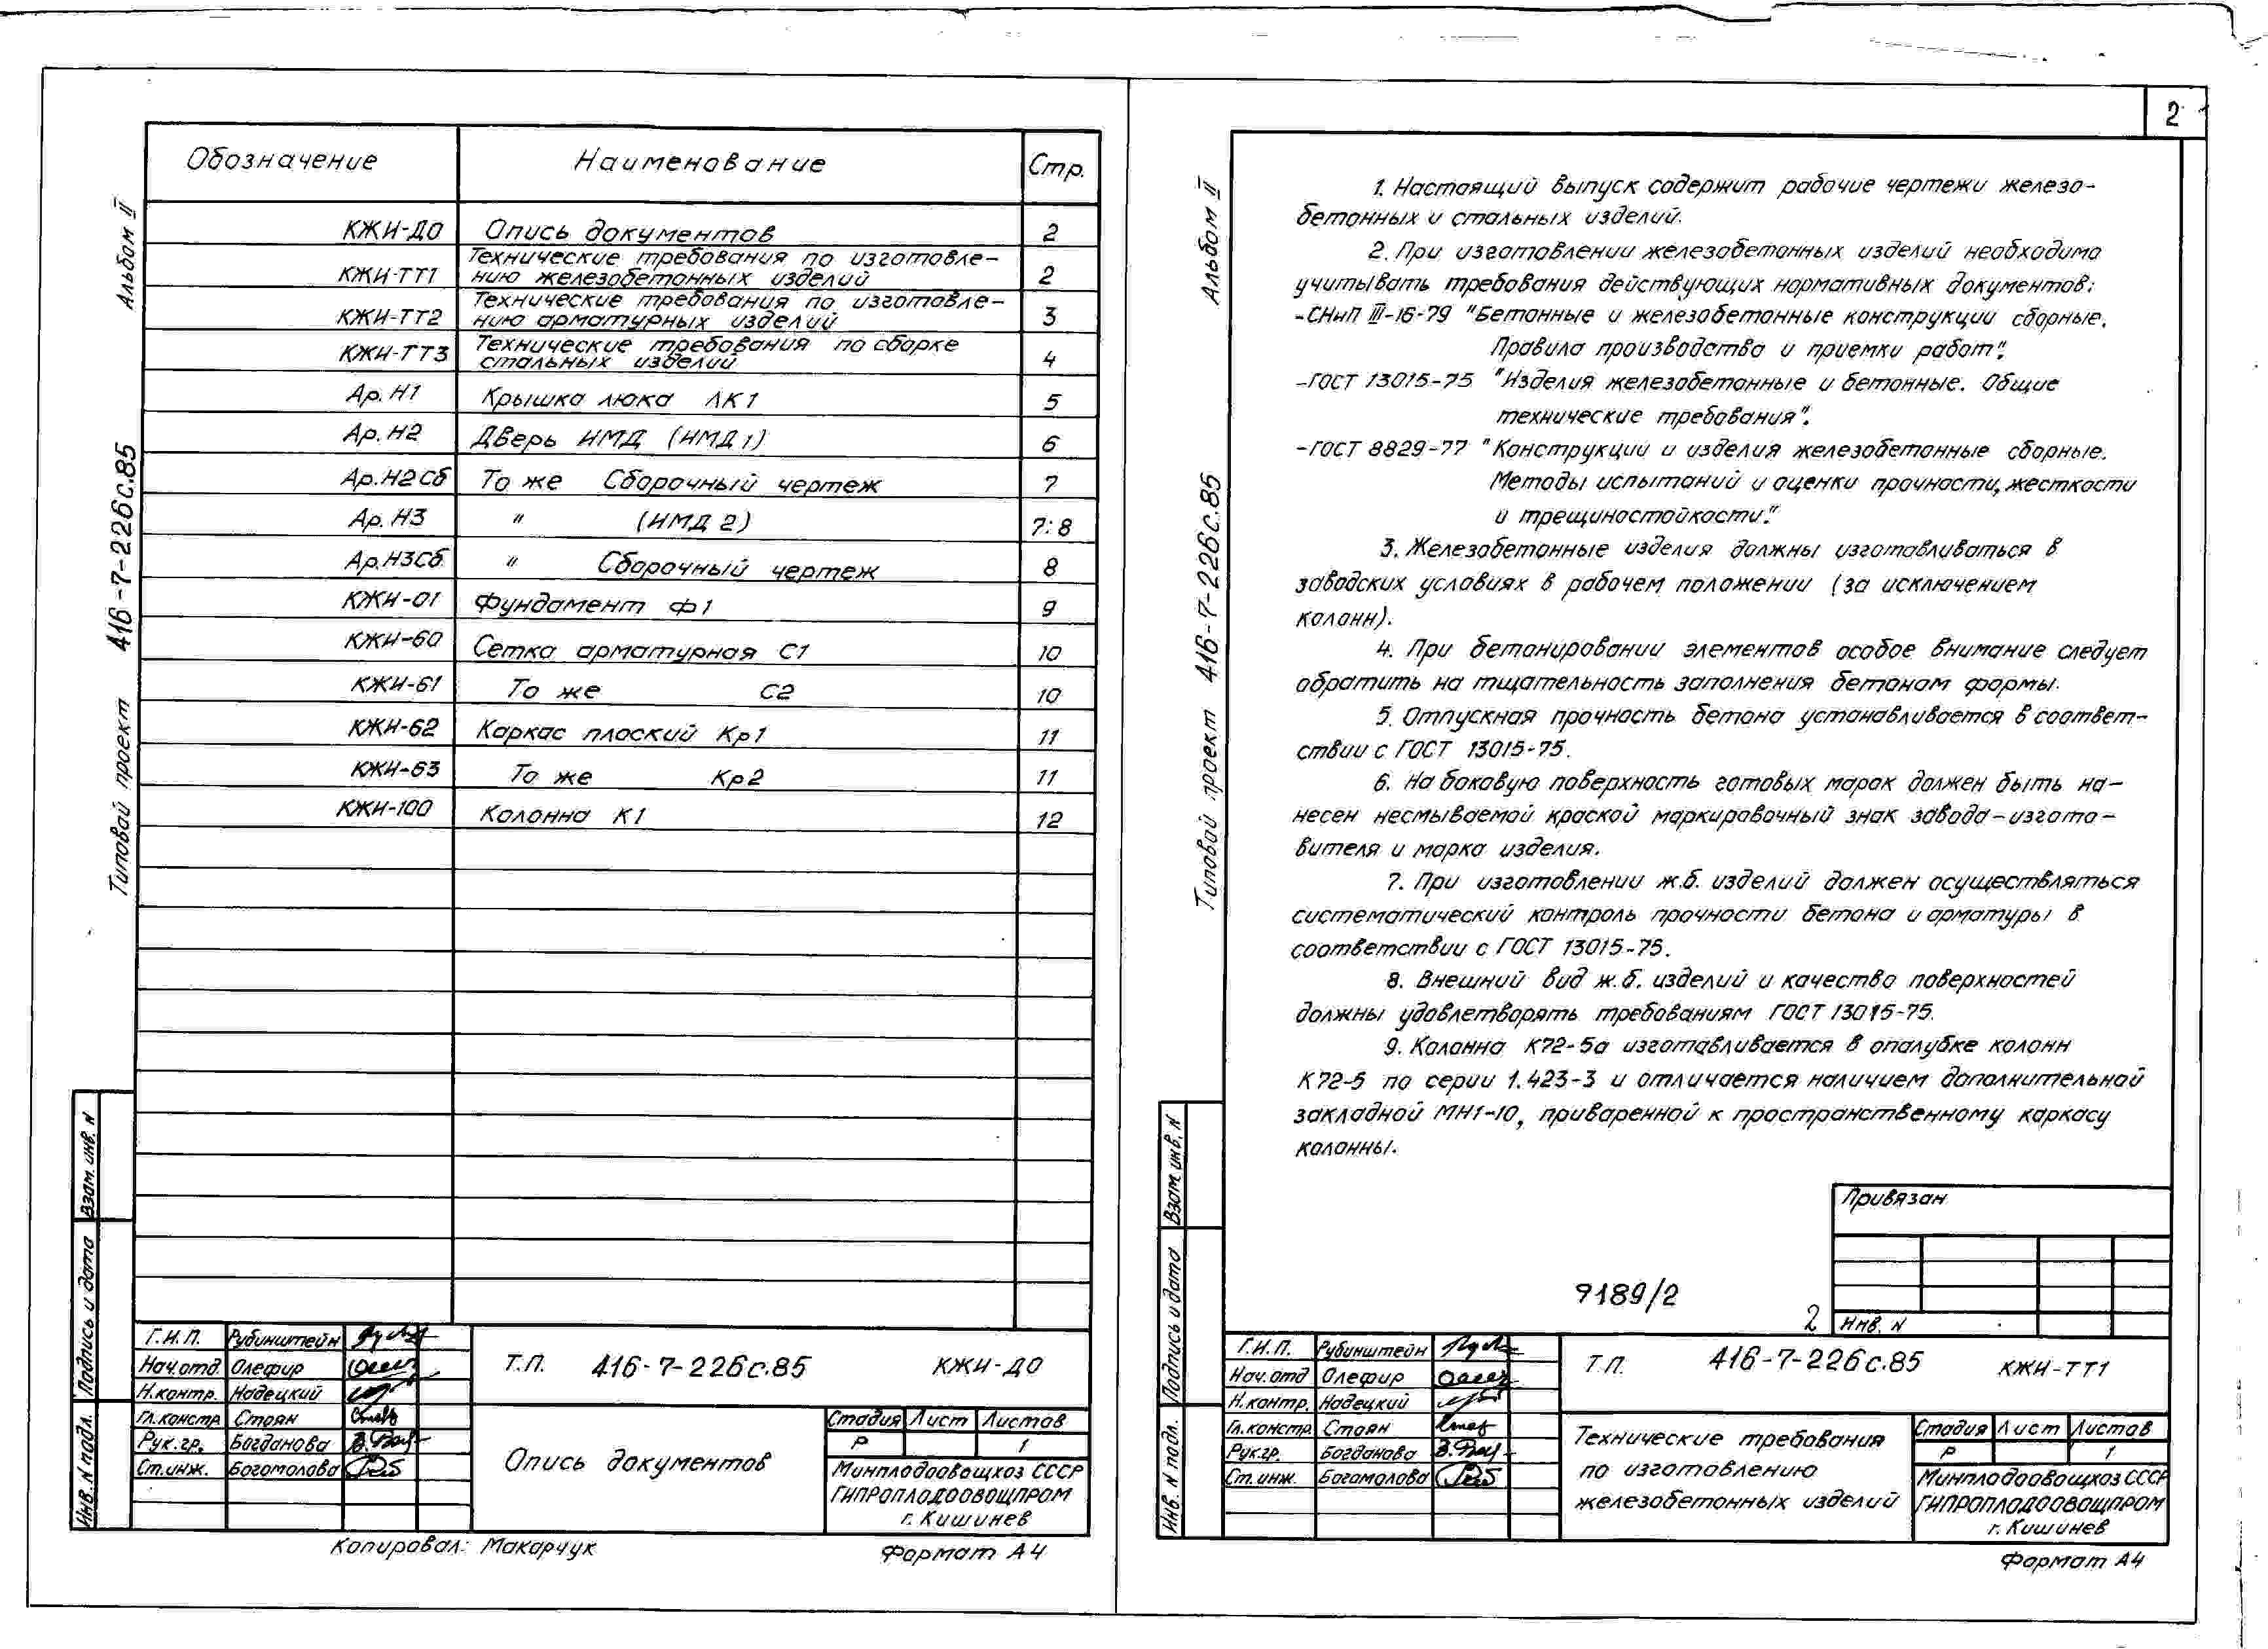 Альбом II
Типовой проект 416-7-226с.85
Обозначение Наименование Стр.
КЖИ-ДО Опись документов 2
КЖИ-ТТ1 Технические требования по изготовле-
нию железобетонных изделий 2
КЖИ-ТТ2 Технические требования по изготовле-
нию арматурных изделий 3
КЖИ-ТТ3 Технические требования по сборке
стальных изделий 4
Ар.Н1 Крышка люка ЛК1 5
Ар.Н2 Дверь НМД (НМД1) 6
Ар.Н2Сб То же Сборочный чертеж 7
Ар.Н3 " (НМД2) 7:8
Ар.Н3Сб " Сборочный чертеж 8
КЖИ-01 Фундамент Ф1 9
КЖИ-60 Сетка арматурная С1 10
КЖИ-61 То же С2 10
КЖИ-62 Каркас плоский Кр1 11
КЖИ-63 То же Кр2 11
КЖИ-100 Колонна К1 12
Взам.инв.N
Подпись и дата
Инв.N подл.
Г.И.П. Рубинштейн
Нач.отд Олефир
Н.контр. Надецкий
Гл.констр Стоян
Рук.гр. Богданова
Ст.инж. Богомолова
Т.П. 416-7-226с.85 КЖИ-ДО
Опись документов
Стадия Лист Листов
Р 1
Минплодоовощхоз СССР
ГИПРОПЛОДООВОЩПРОМ
г. Кишинев
Копировал: Макарчук
Формат А4
2
Альбом II
Типовой проект 416-7-226с.85
1. Настоящий выпуск содержит рабочие чертежи железо-
бетонных и стальных изделий.
2. При изготовлении железобетонных изделий необходимо
учитывать требования действующих нормативных документов:
-СНиП III-16-79 "Бетонные и железобетонные конструкции сборные.
Правила производства и приемки работ".
-ГОСТ 13015-75 "Изделия железобетонные и бетонные. Общие
технические требования".
-ГОСТ 8829-77 "Конструкции и изделия железобетонные сборные.
Методы испытаний и оценки прочности, жесткости
и трещиностойкости".
3. Железобетонные изделия должны изготавливаться в
заводских условиях в рабочем положении (за исключением
колонн).
4. При бетонировании элементов особое внимание следует
обратить на тщательность заполнения бетоном формы.
5. Отпускная прочность бетона устанавливается в соответ-
ствии с ГОСТ 13015-75.
6. На боковую поверхность готовых марок должен быть на-
несен несмываемой краской маркировочный знак завода-изгото-
вителя и марка изделия.
7. При изготовлении ж.б. изделий должен осуществляться
систематический контроль прочности бетона и арматуры в
соответствии с ГОСТ 13015-75.
8. Внешний вид ж.б. изделий и качество поверхностей
должны удовлетворять требованиям ГОСТ 13015-75.
9. Колонна К72-5а изготавливается в опалубке колонн
К72-5 по серии 1.423-3 и отличается наличием дополнительной
закладной МН1-10, приваренной к пространственному каркасу
колонны.
Привязан
Инв. N
9189/2
2
Взам.инв.N
Подпись и дата
Инв.N подл.
Г.И.П. Рубинштейн
Нач.отд Олефир
Н.контр. Надецкий
Гл.констр. Стоян
Рук.гр. Богданова
Ст.инж. Богомолова
Т.П. 416-7-226с.85 КЖИ-ТТ1
Технические требования
по изготовлению
железобетонных изделий
Стадия Лист Листов
Р 1
Минплодоовощхоз СССР
ГИПРОПЛОДООВОЩПРОМ
г. Кишинев
Формат А4